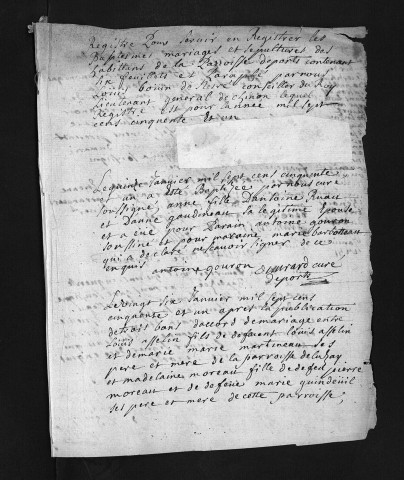 Registre Pour servir en Registrer les
Baptesmes mariages et sepultures des
habitans de la Parroisse deports contenant
six feuillets et Paraphé parnous
Louis bouin de noiré conseiller du Roy
Lieutenant general de chinon lequel
Registre est pour lannee mil sept
cens cinquente et un
Lequinze Janvier mil sept cens cinquente
et un a este Baptisee par nous curé
soussigné, anne fille Dantoine Ruau
et Danne gaudineau sa legitime Epouse
et a eue pour Parain antoine gouron
soussigne et pour maraine marie barbotteau
qui a declaré nescavoir signer de ce
enquis antoine gouron Durard curé
deports
Le vingt six Janvier mil sept cens
cinquente et un apres la publication
detrois bans daccord demariage entre
Louis asselin fils de deffunt Louis asselin
et demarie marie martineau ses
pere et mere de la parroisse delahay
et madelaine moreau fille de defeu pierre
moreau et de defeue marie quindeüil
ses pere et mere de cette parroisse,